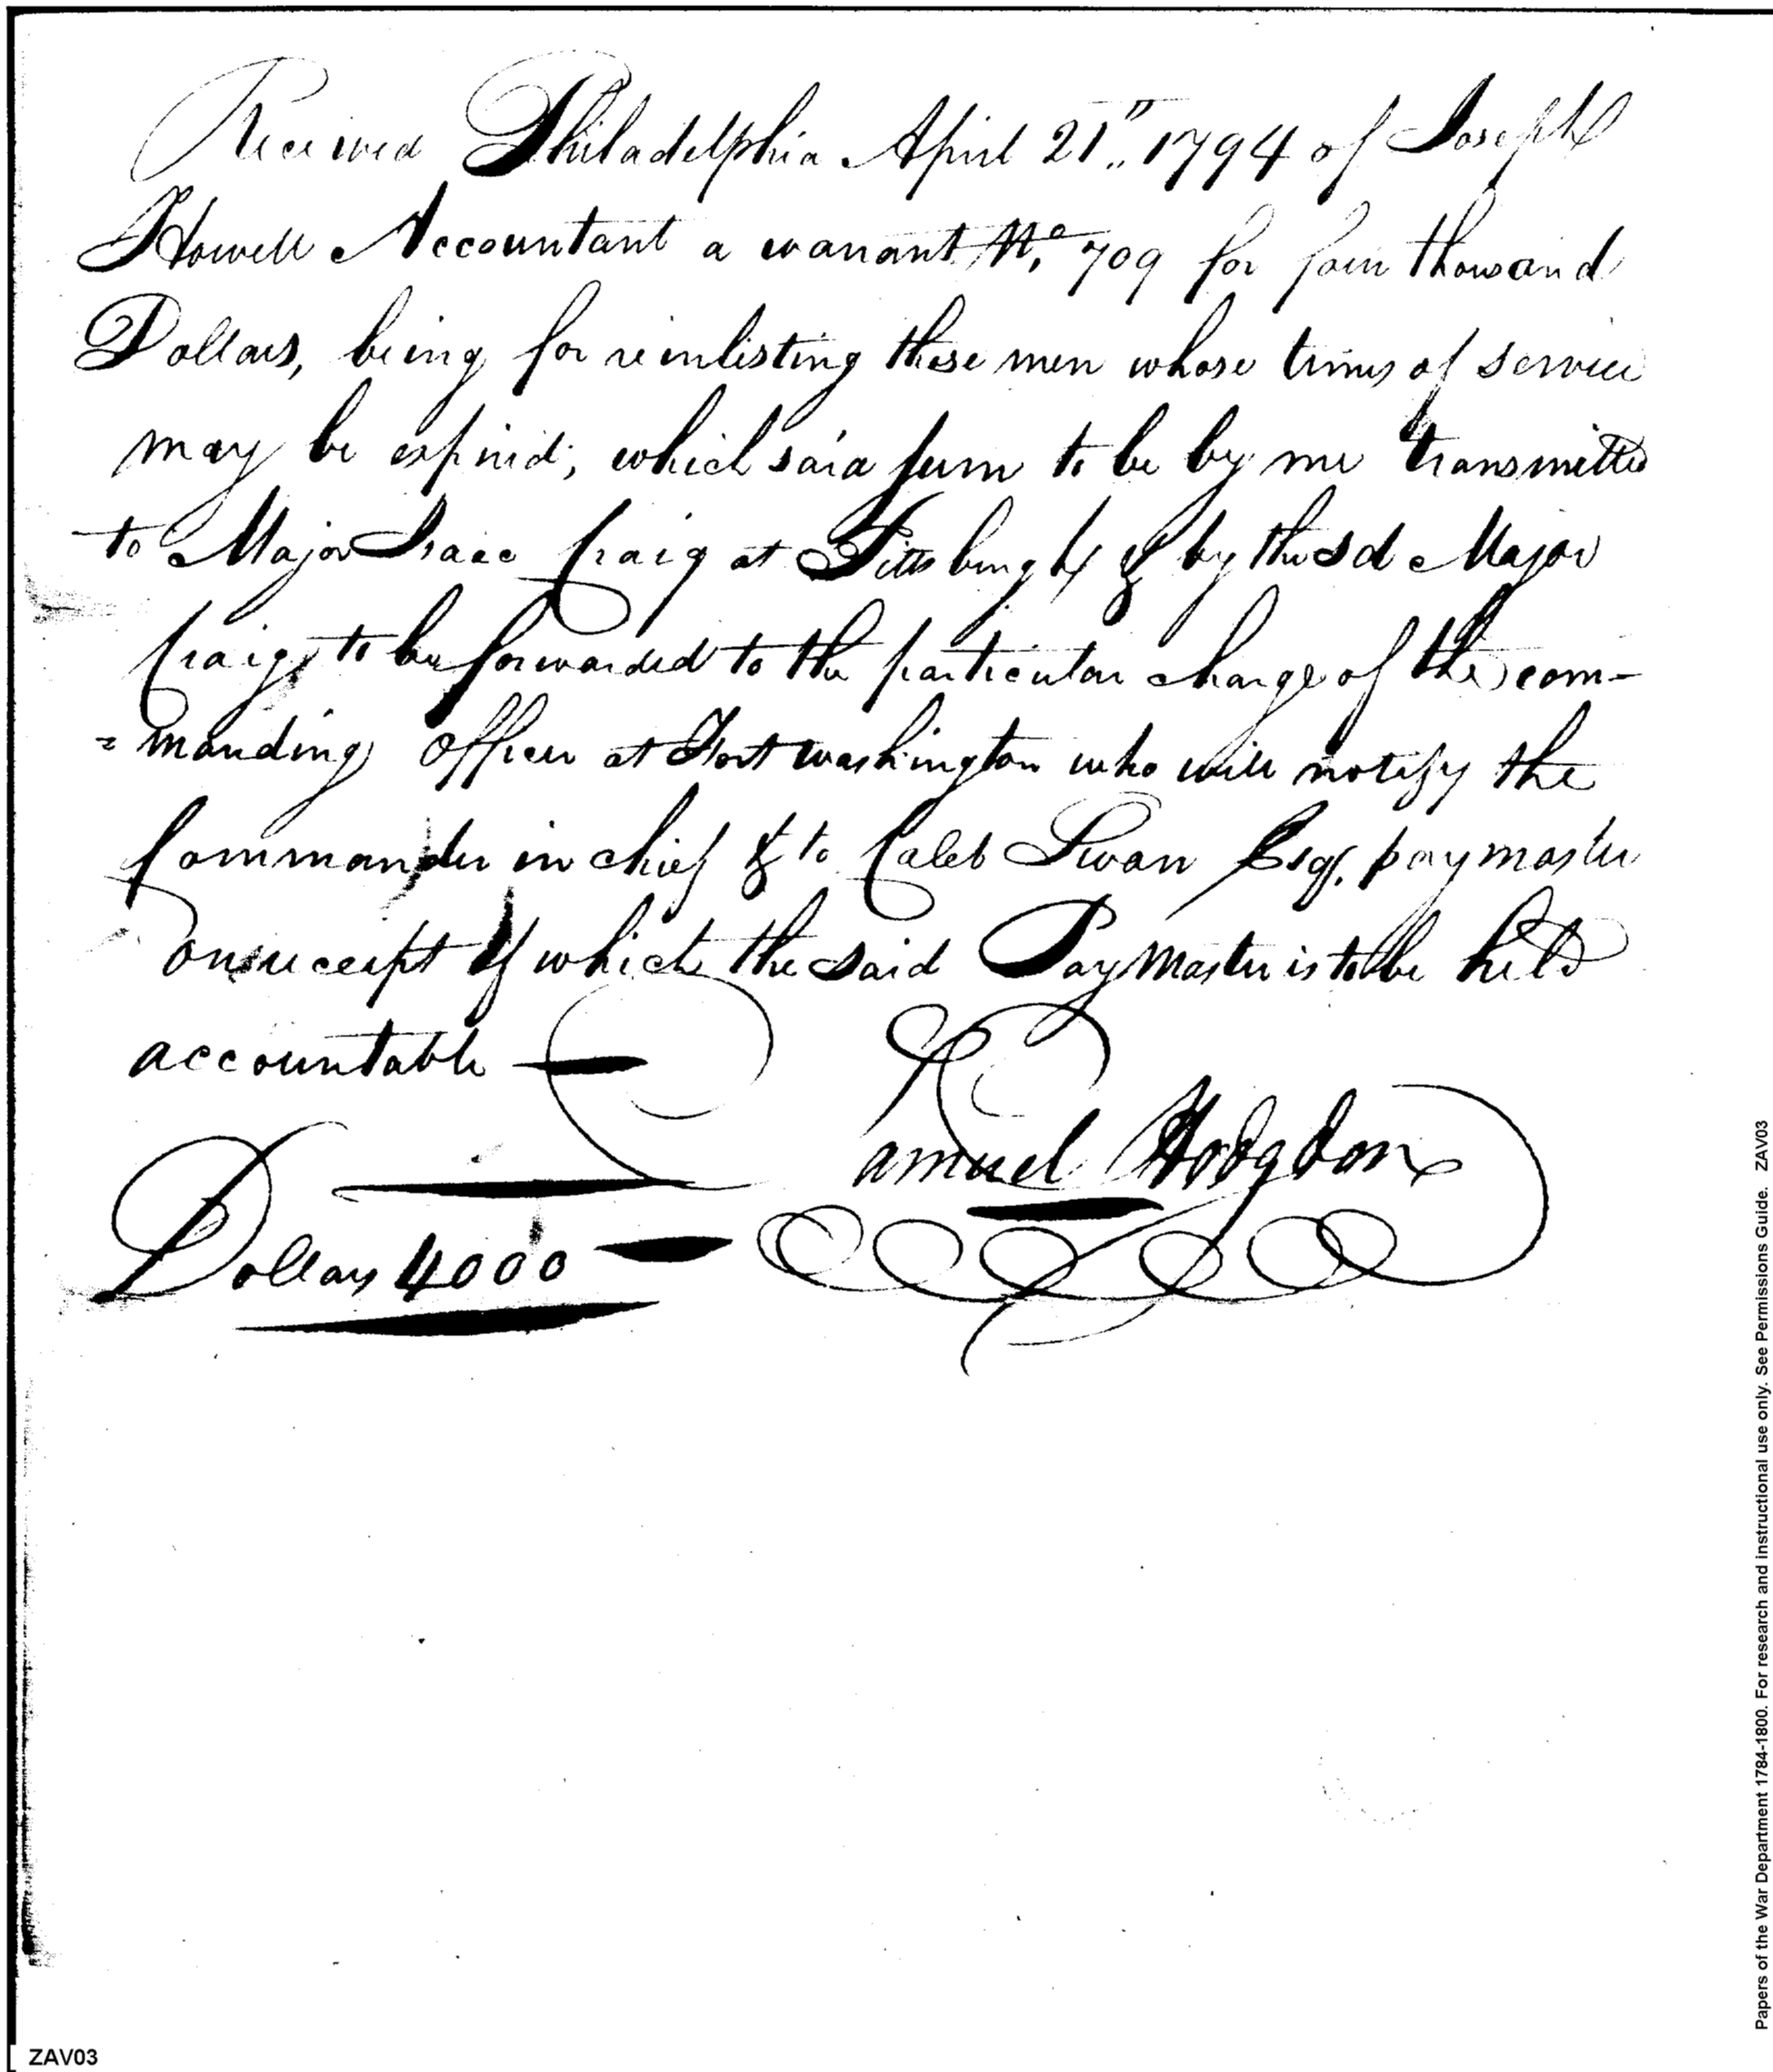 Received Philadelphia April 21". 1794 of Joseph
Howell Accountant a warrant No. 709 for four thousand
Dollars, being for reinlisting those men whose times of service
may be expired; which said sum to be by me transmitted
to Major Isaac Craig at Pittsburgh & by the sd Major
Craig, to be forwarded to the particular charge of the com-
=manding Officer at Fort Washington who will notify the
Commander in chief & to Caleb Swan Esqr. paymaster
on receipt of which the said Paymaster is to be held
accountable —
Samuel Hodgdon
Dollars 4000 —
Papers of the War Department 1784-1800. For research and instructional use only. See Permissions Guide. ZAV03
ZAV03